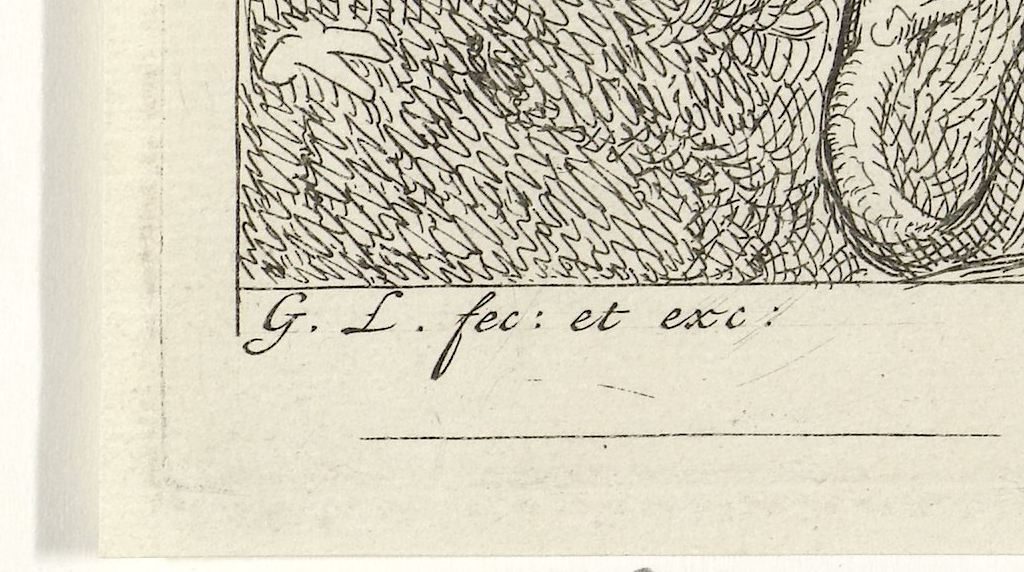 G. L. fec: et exc: